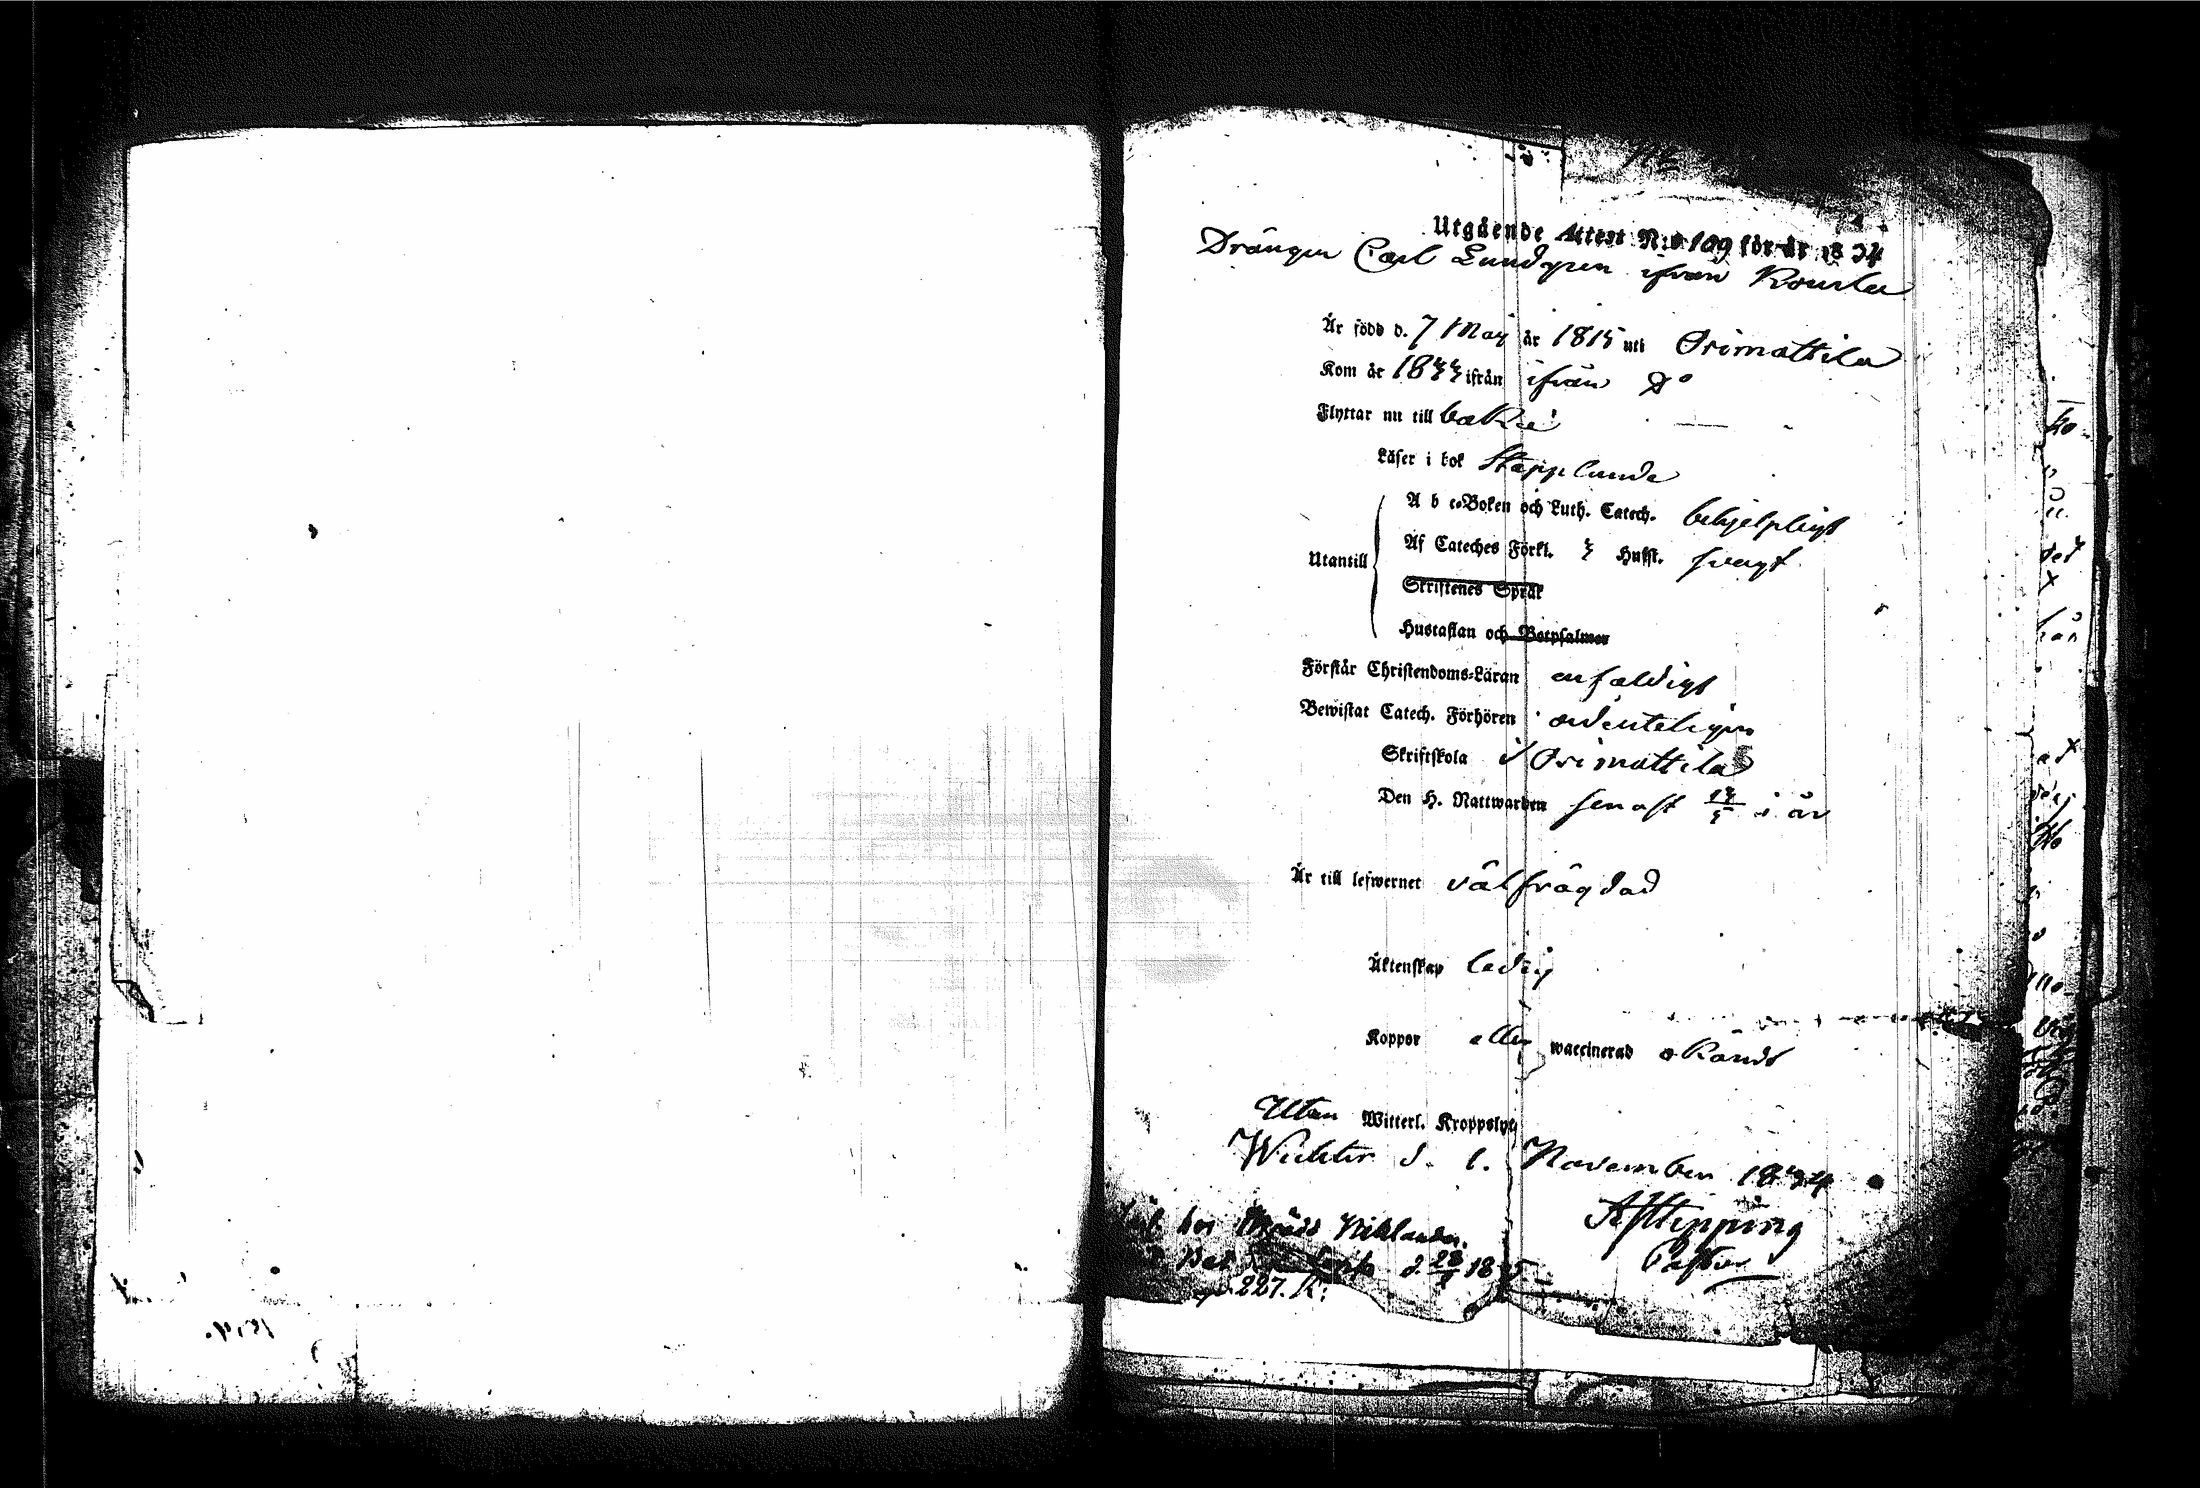 Utgående Attest N:o 109 för år 1834
Drängen Carl Lundgren ifrån Rouska
Är född d. 7 Maj år 1815 uti Orimattila
Kom år 1833 ifrån ifrån Do
Flyttar nu till bakä
Läser i bok Stapplande
A b c-Boken och Luth. Catech. behjelpligt
Utantill
Af Cateches Förkl. 3 Hufst. svagt
Skriftenes Språk
Hustaflan och Botpsalmer
Förstår Christendoms-Läran enfaldigt
Bewistat Catech. Förhören ordenteligen
Skriftskola i Orimattila
Den H. Nattwarden senast 13/5 i år
Är till lefwernet välfrägdad
Äktenskap ledig
Koppor eller waccinerad okändt
Utan Witterl. Kroppslyt,
d. 1. November 1834
Pastor
hos Niklander.
d. 28 18
227. K: